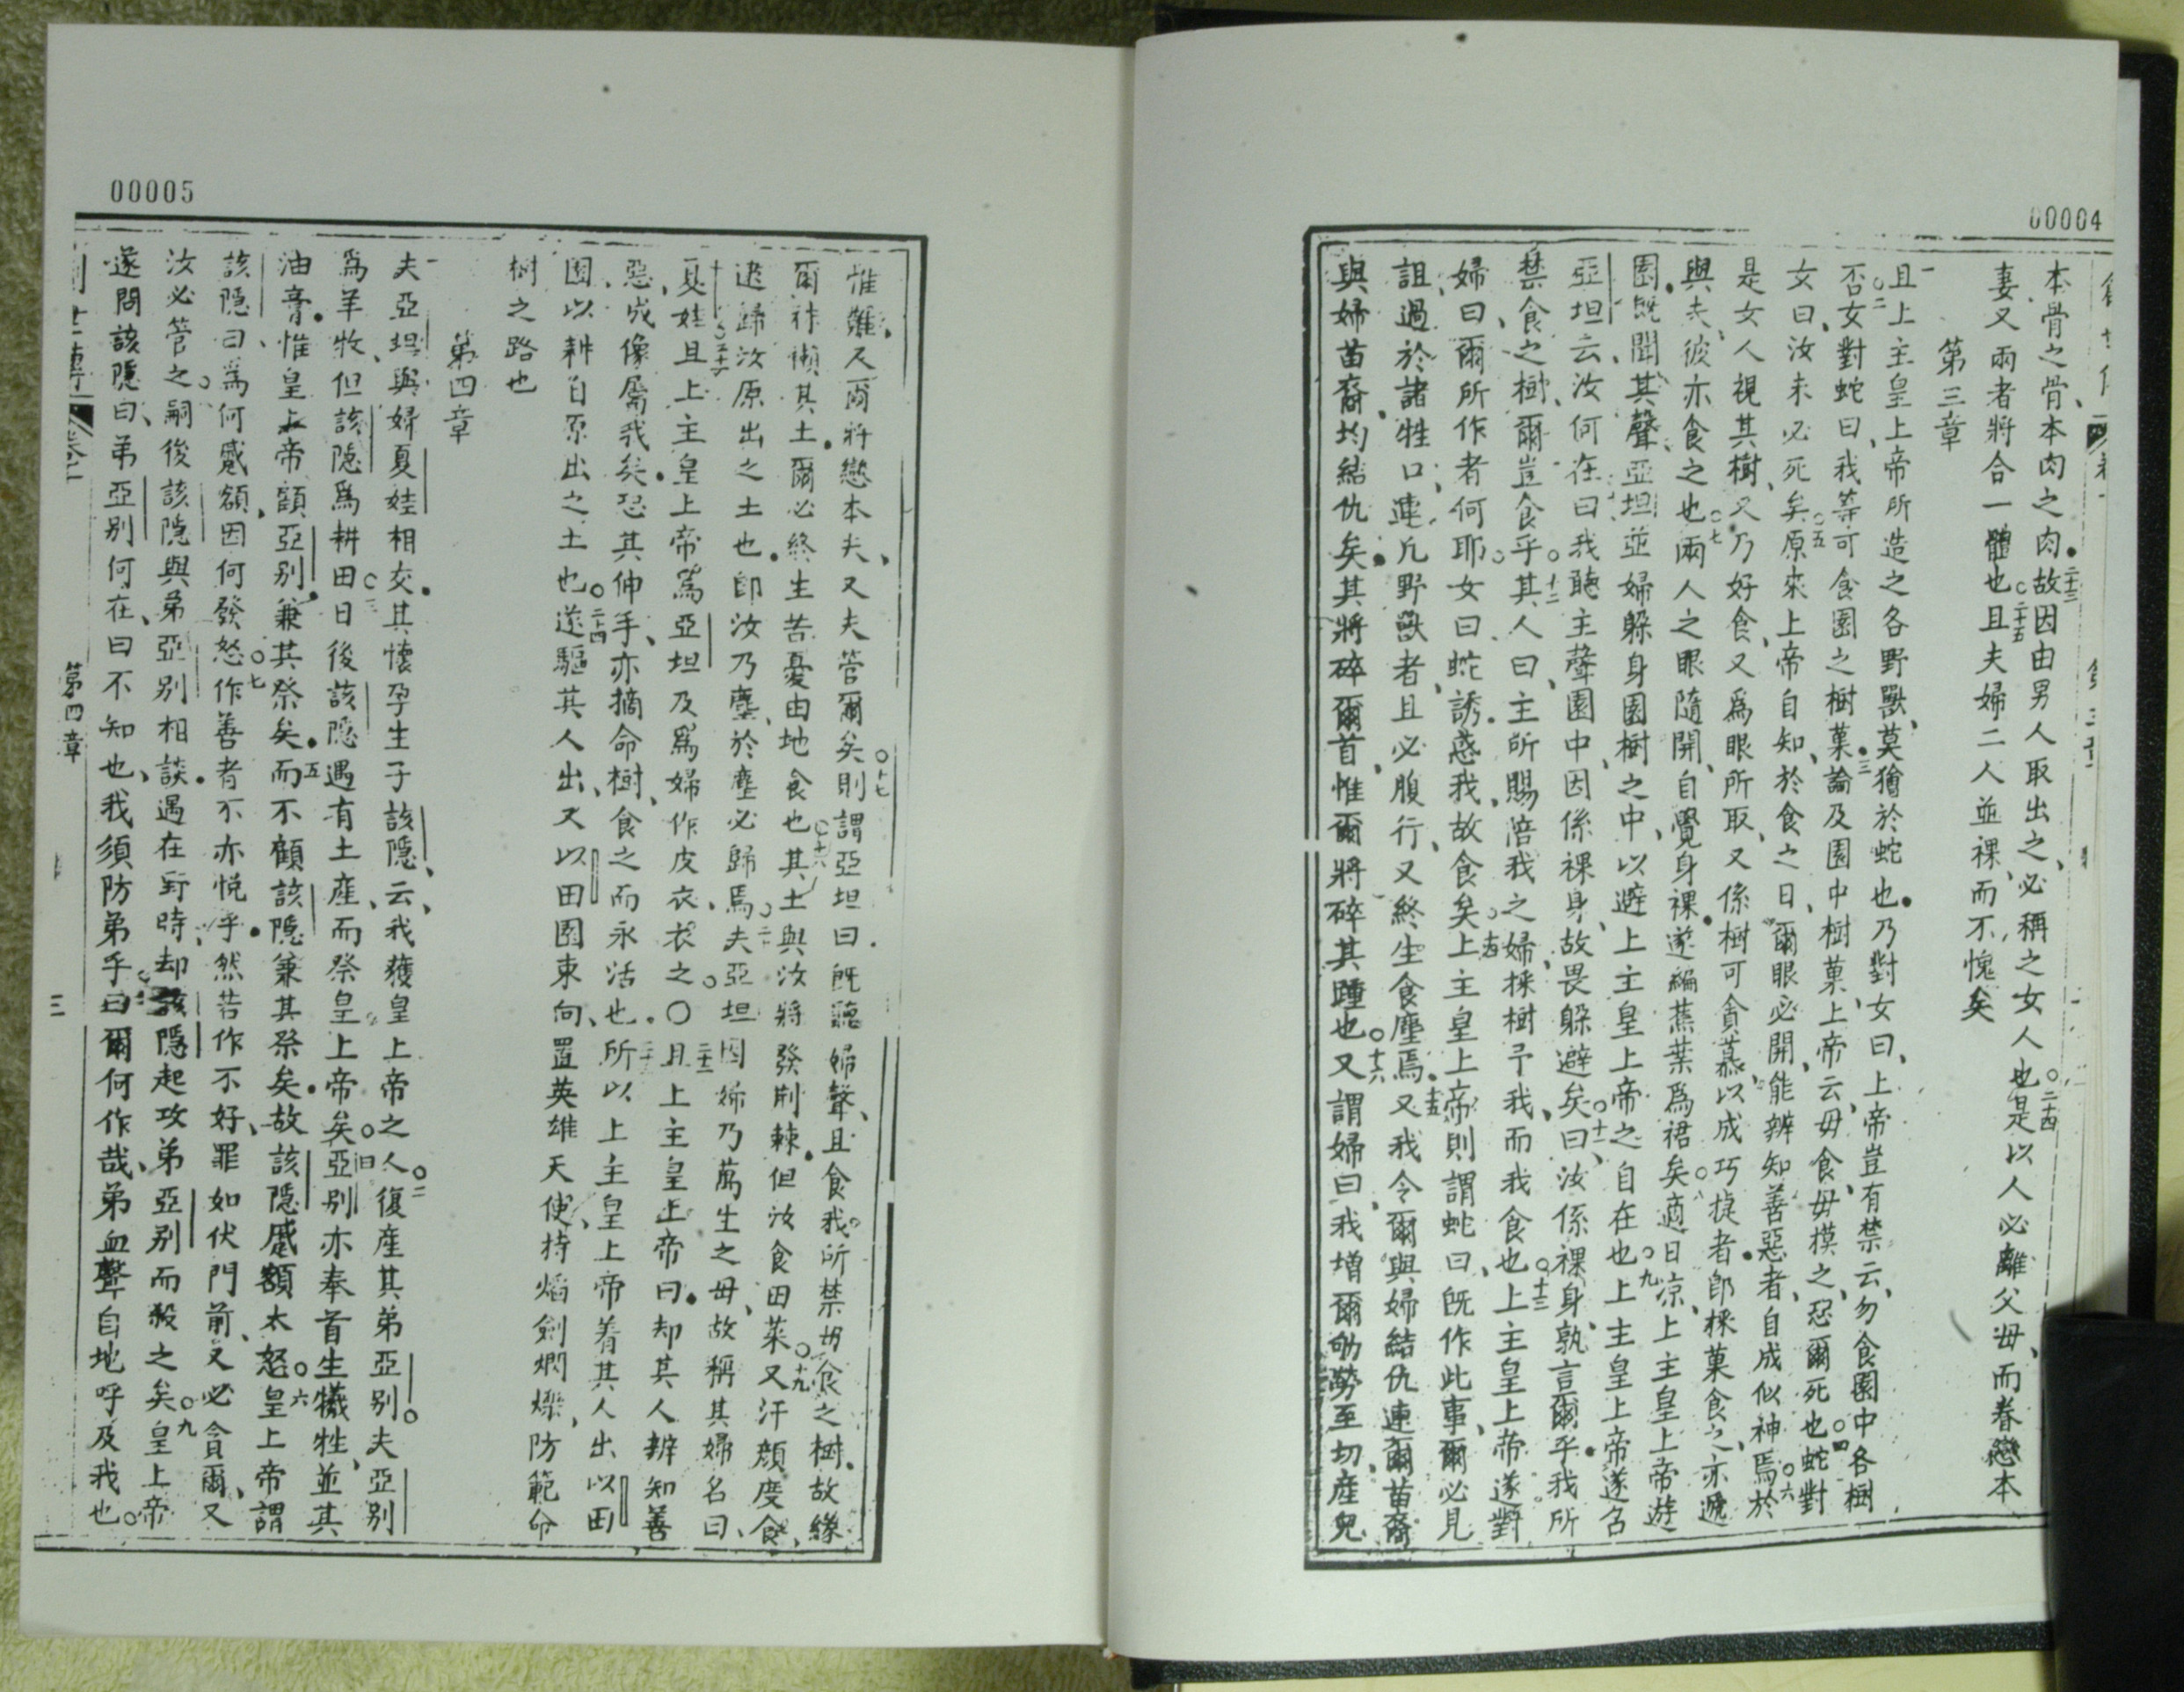 00004
本骨之骨、本肉之肉。二十三故因由男人取出之、必稱之女人也。二十四是以人必離父毋、而眷戀本
妻又兩者將合一體也。二十五且夫婦二人並裸、而不愧矣
第三章
一且上主皇上帝所造之各野獸、莫獪於蛇也。乃對女曰、上帝豈有禁云、勿食園中各樹
否。二女對蛇曰、我等可食園之樹菓。三論及園中樹菓、上帝云、毋食、毋摸之、恐爾死也。四蛇對
女曰、汝未必死矣。五原來上帝自知、於食之日、爾眼必開、能辨知善惡者、自成似神焉。六於
是女人視其樹、又乃好食、又爲眼所取、又係樹可貪慕、以成巧捷者。郎採菓食之、亦遞
與夫、彼亦食之也。七兩人之眼隨開、自覺身裸。遂編蕉葉爲裙矣。八適日凉、上主皇上帝遊
園。既聞其聲、亞坦並婦躲身園樹之中、以避上主皇上帝之自在也。九上主皇上帝遂名
亞坦云、汝何在。曰我聽主聲園中、因係裸身、故畏躲避矣。十一曰、汝係裸身、孰言爾乎。我所
禁食之樹、爾豈食乎。十二其人曰、主所賜陪我之婦、採樹予我、而我食也。十三上主皇上帝遂對
婦曰、爾所作者何耶。女曰、蛇誘惑我、故食矣。十四上主皇上帝則謂蛇曰、旣作此事、爾必見
詛、過於諸牲口、連凡野獸者、且必腹行、又終生食塵焉。十五又我令爾與婦結仇、連爾苗裔
與婦苗裔、均結仇矣。其將碎爾首、惟爾將碎其踵也。十六又謂婦曰、我增爾劬勞、至切產兒
00005
惟難。又爾將戀本夫、又夫管爾矣。十七則謂亞坦曰、旣聽婦聲、且食我所禁毋食之樹。故緣
爾祚懶其土。爾必終生苦憂由地食也。十八其土與汝將發荊棘。但汝食田菜。十九又汗顏度食、
迨歸汝原出之土也。卽汝乃塵、於塵必歸焉。二十夫亞坦因婦乃萬生之母、故稱其婦名曰、
夏娃。二十一且上主皇上帝爲亞坦及爲婦、作皮衣、衣之。〇二十二且上主皇上帝曰。却其人辨知善
惡、成像屬我矣。恐其伸手、亦摘命樹、食之而永活也。二十三所以上主皇上帝着其人出以田
園、以耕自原出之土也。二十四遂驅其人出、又以田園東向、置英雄天使、持焰劍爛爍、防範命
樹之路也
第四章
一夫亞坦與婦夏娃相交。其懷孕生子該隱、云、我獲皇上帝之人。二復産其弟亞別。夫亞別
爲羊牧、但該隱爲耕田。三日後該隱遇有土産、而祭皇上帝矣。四亞別亦奉首生犧牲、並其
油膏。惟皇上帝顧亞別、兼其祭矣。五而不顧該隱兼其祭矣。故該隱蹙額太怒。六皇上帝謂
該隱曰、爲何蹙額、因何發怒。七作善者不亦悅乎。然若作不好、罪如伏門前、又必貪爾、又
汝必管之。八嗣後該隱與弟亞別相談。遇在野時、却該隱起攻弟亞別而殺之矣。九皇上帝
遂問該隱曰、弟亞別何在、曰不知也、我須防弟乎。十曰爾何作哉、弟血聲自地呼及我也。
第四章
三